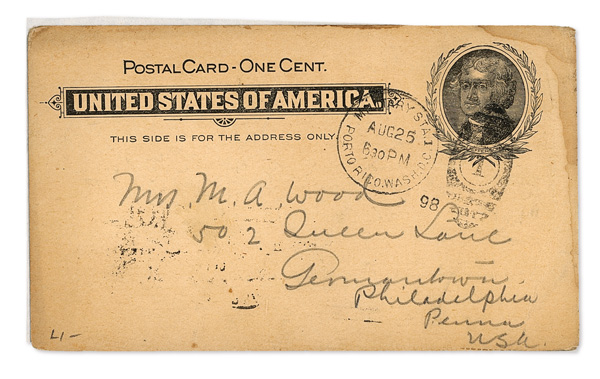 POSTAL CARD - ONE CENT.
UNITED STATES OF AMERICA.
THIS SIDE IS FOR THE ADDRESS ONLY.
MILITARY STA. 1
AUG 25
630 PM
PORTO RICO, WASH. D.C.
98
1
Mrs. M. A. Wood
502 Queen Lane
Germantown
Philadelphia
Penna
USA.
L1-